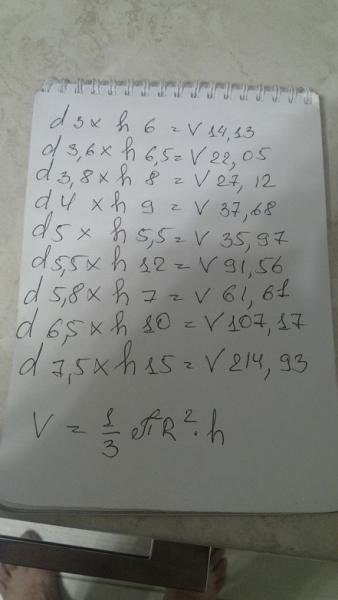 d 3 x h 6 = V 14,13
d 3,6 x h 6,5 = V 22,05
d 3,8 x h 8 = V 27,12
d 4 x h 9 = V 37,68
d 5 x h 5,5 = V 35,97
d 5,5 x h 12 = V 91,56
d 5,8 x h 7 = V 61,61
d 6,5 x h 10 = V 107,17
d 7,5 x h 15 = V 214,93
V = 1/3 πR²·h